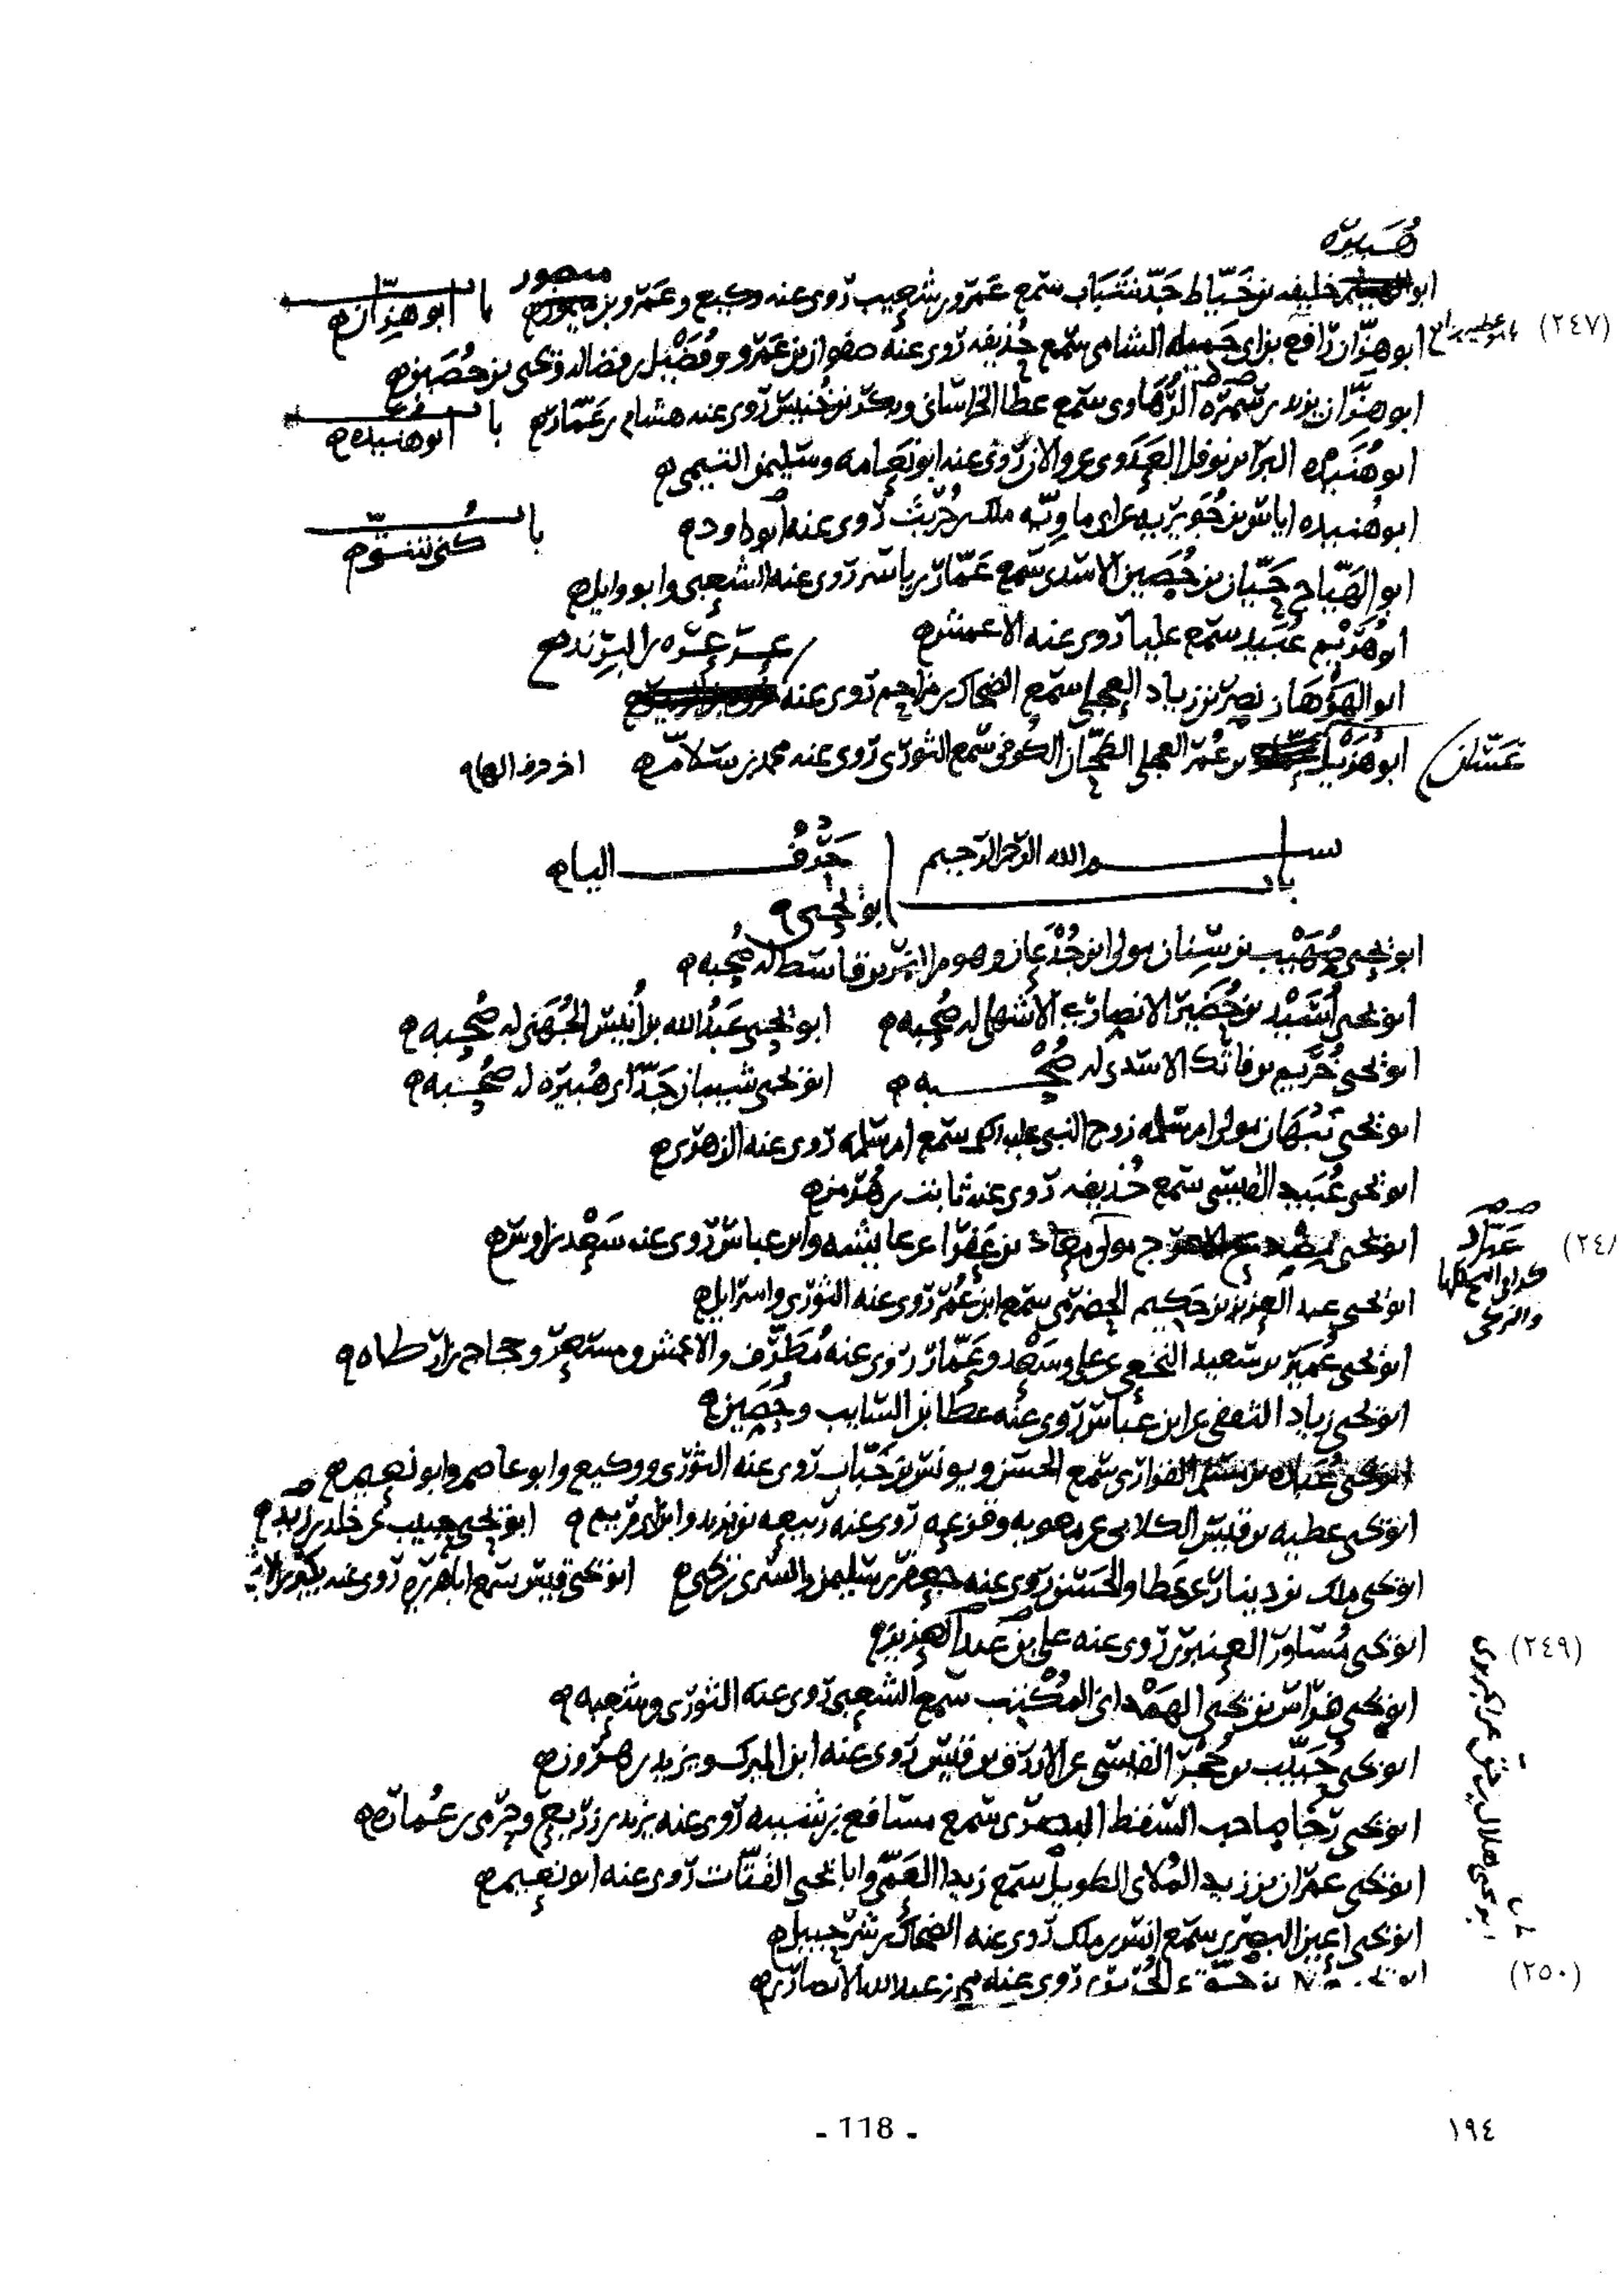 هبيرة
ابو خليفه بن خياط جد شباب سمع عمرو بن شعيب روى عنه وكيع وعمرو بن منصور باب ابو هزان
(٢٤٧)
ابو هزان رافع بن ابي الشامي سمع حذيفه روى عنه صفوان بن عمرو وفضيل بن فضاله ويحيى بن حصين
ابو هزان يزيد بن سمره الرهاوي سمع عطا الخراساني وبكر بن خنيس روى عنه هشام بن عمار باب ابو هنيده
ابو هنيده البرا بن نوفل العدوي عن والان روى عنه ابو نعامه وسليمن التيمي
ابو هنيده اياس بن جويريه عن ابي ماويه حريث روى عنه ابو داود باب كنى شتى
ابو الهياج حيان بن حصين الاسدي سمع عمار بن ياسر روى عنه الشعبي وابو وايل
ابو هريم عبيد سمع عليا روى عنه الاعمش
ابو الهزهاز نصر بن زياد العجلي سمع الضحاك بن مزاحم روى عنه عرعره بن البرند
ابو هذيل غسان بن عمر العجلي الطحان الكوفي سمع الثوري روى عنه محمد بن سلام اخر حرف الهاء
بسم الله الرحمن الرحيم حرف الياء
باب ابو يحيى
ابو يحيى صهيب بن سنان مولى ابن جدعان وهو من النمر بن قاسط له صحبه
ابو يحيى اسيد بن حضير الانصاري الاشهلي له صحبه ابو يحيى عبد الله بن انيس الجهني له صحبه
ابو يحيى خريم بن فاتك الاسدي له صحبه ابو يحيى شيبان جد ابي هبيره له صحبه
ابو يحيى نبهان مولى ام سلمه زوج النبي سمع ام سلمه روى عنه الزهري
ابو يحيى عبيد القيسي سمع حذيفه روى عنه ثابت بن هرمز
ابو يحيى مولى معاذ بن عفرا عن عايشه وابن عباس روى عنه سعد بن اوس
ابو يحيى عبد العزيز بن حكيم الحضرمي سمع ابن عمر روى عنه الثوري واسرايل
ابو يحيى عمير بن سعيد النخعي عن علي وسعد وعمار روى عنه مطرف والاعمش ومسعر وحجاج بن ارطاه
ابو يحيى زياد الثقفي عن ابن عباس روى عنه عطا بن السايب وحصين
ابو يحيى عباد بن مسلم الفزاري سمع الحسن ويونس بن خباب روى عنه الثوري ووكيع وابو عاصم وابو نعيم
ابو يحيى عطيه بن قيس الكلابي عن معويه وقزعه روى عنه ربيعه بن يزيد وابن ابي مريم ابو يحيى حبيب عن خلد بن
ابو يحيى ملك بن دينار عن عطا والحسن روى عنه جعفر بن سليمن والسري بن يحيى ابو يحيى قيس سمع ابا هريره روى عنه بكير بن الاشج
ابو يحيى مساور العنبري روى عنه علي بن عبد العزيز
(٢٤٩)
ابو يحيى فراس بن يحيى الهمداني المكتب سمع الشعبي روى عنه الثوري وشعبه
ابو يحيى حبيب بن حجر القيسي عن الازرق بن قيس روى عنه ابن المبرك ويزيد بن هرون
ابو يحيى رجا صاحب السقط البصري سمع مسافع بن شيبه روى عنه يزيد بن زريع وحرمي بن عماره
ابو يحيى عمران بن زيد الملاي الطويل سمع زيدا العمي وابا يحيى القتات روى عنه ابو نعيم
ابو يحيى اعين البصري سمع انس بن ملك روى عنه الضحاك بن شرحبيل
روى عنه محمد بن عبد الله الانصاري
(٢٥٠)
- 118 -
١٩٤